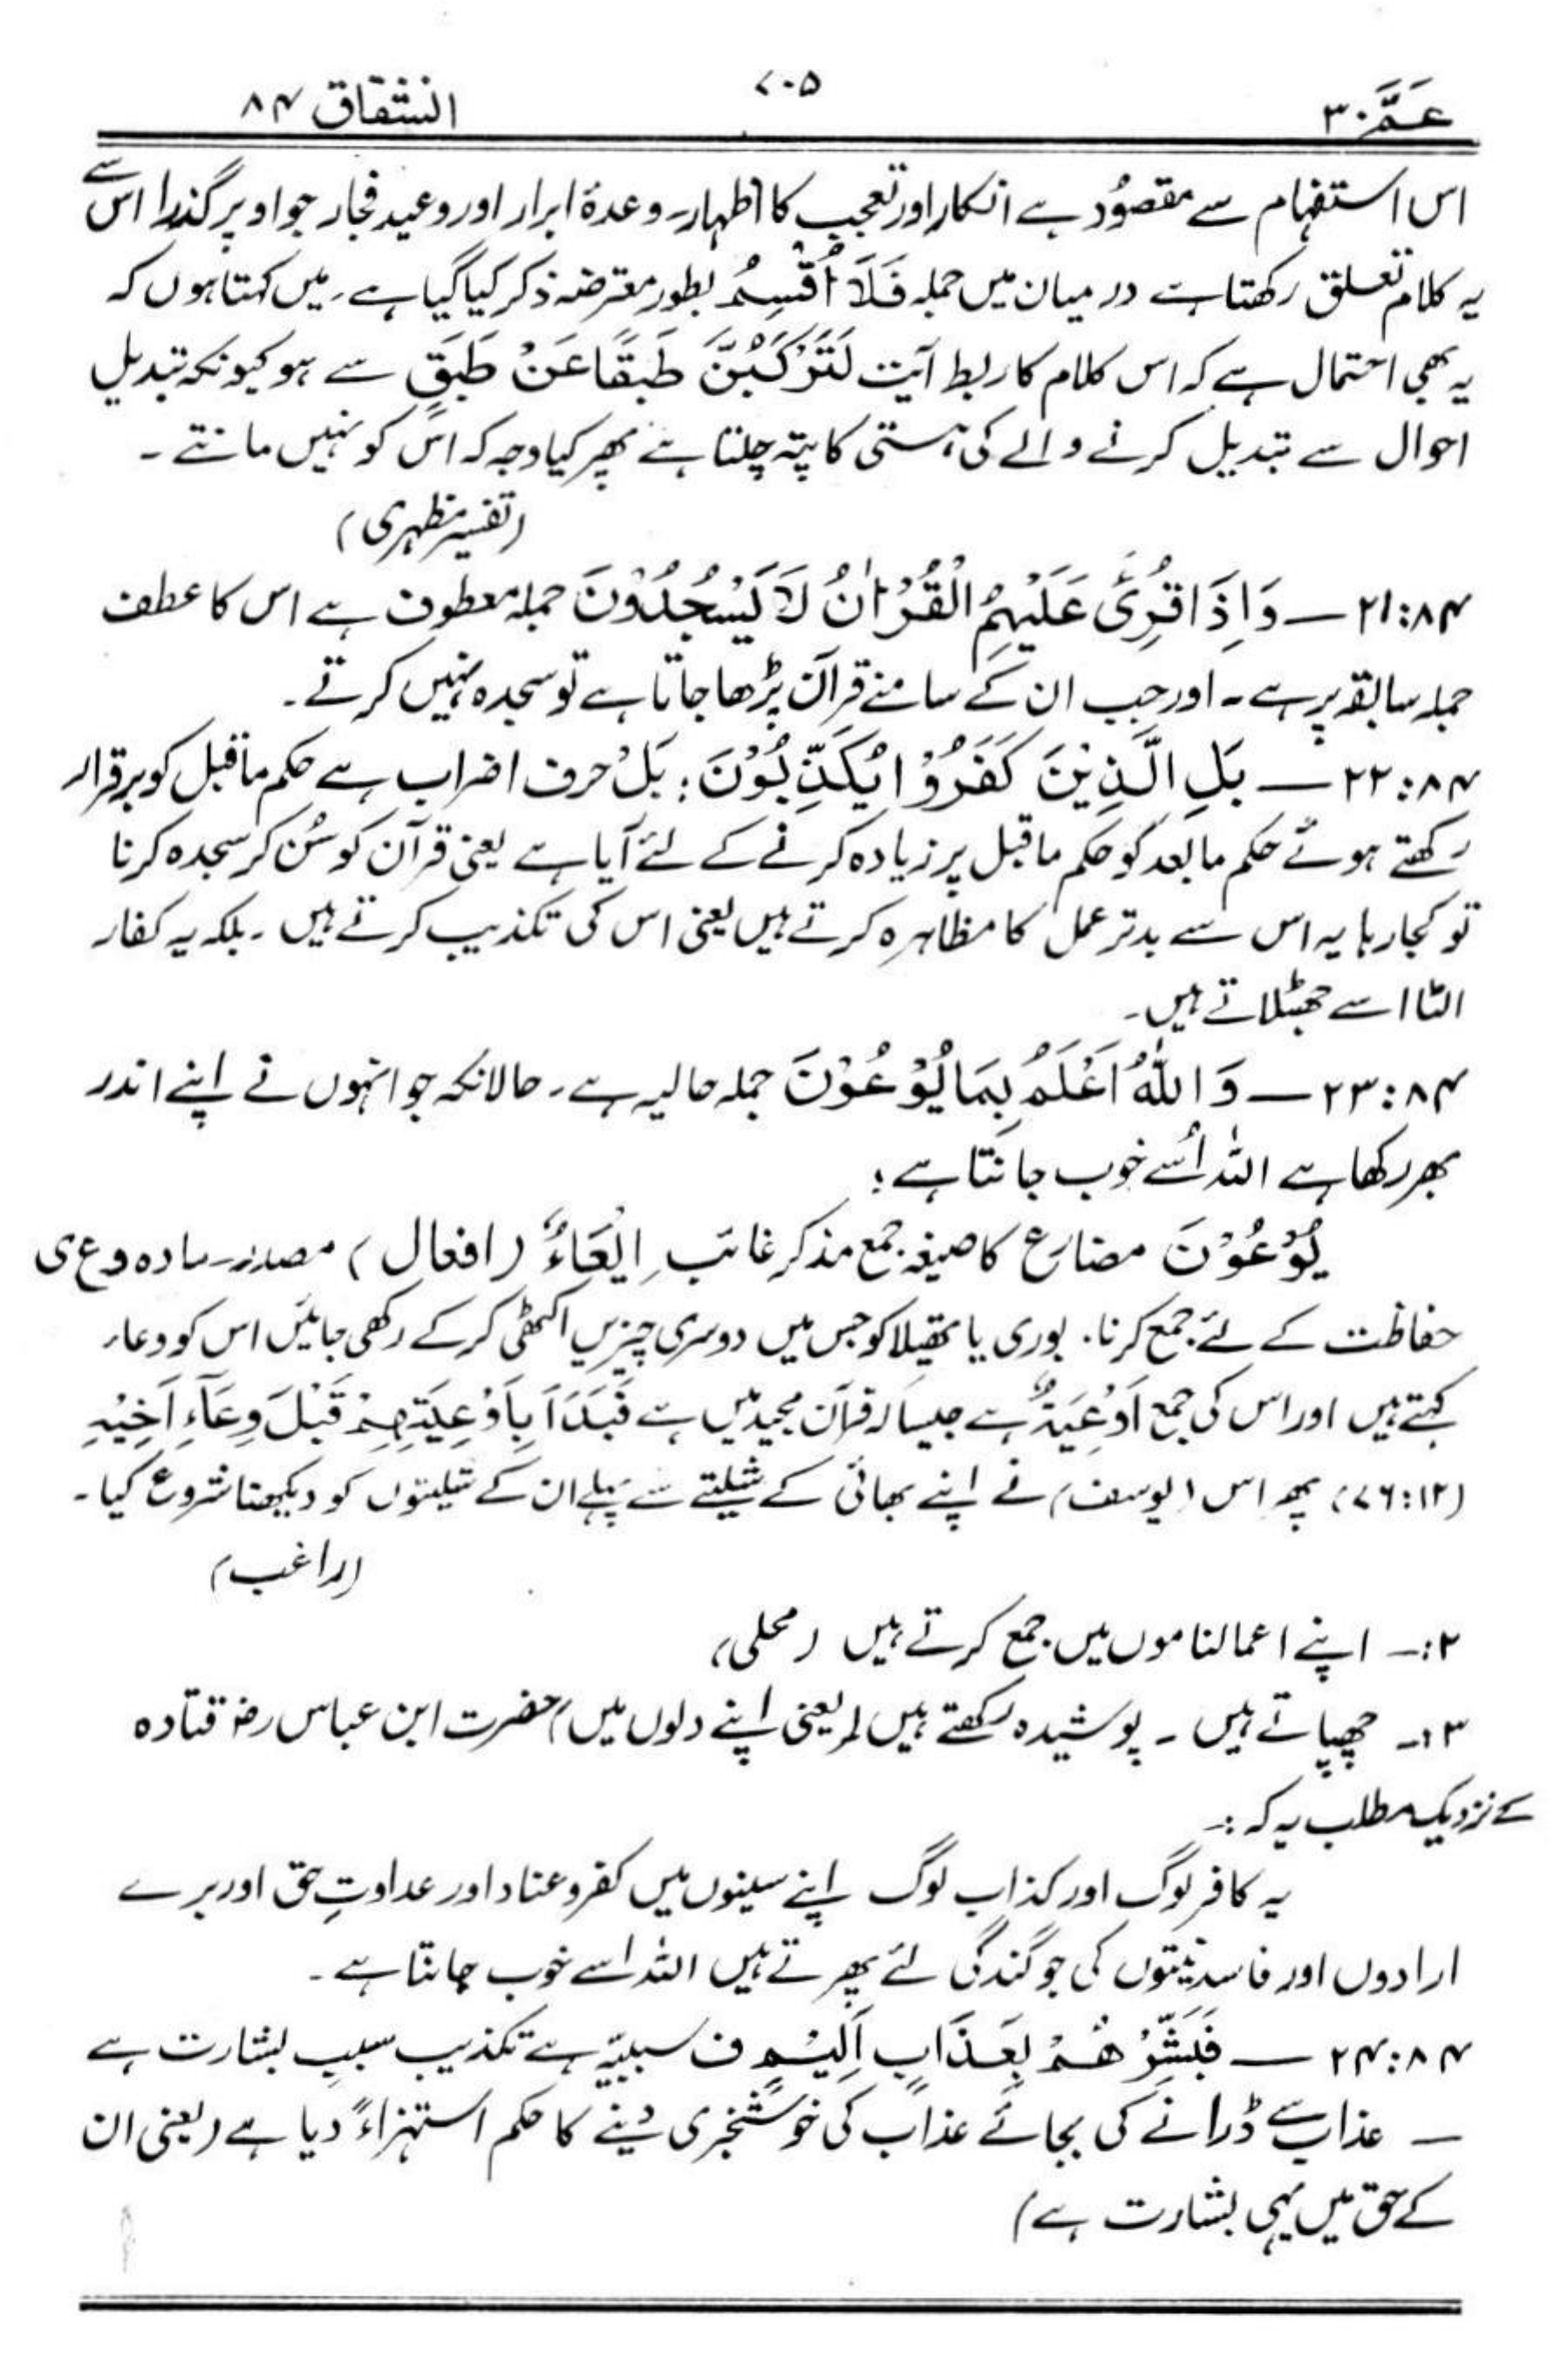 عَمَّ ۳۰
۷۰۵
انشقاق ۸۴
اس استفہام سے مقصُود ہے انکار اور تعجب کا اظہار۔ وعدۂ ابرار اور وعید فجار جو اوپر گذرا اس سے
یہ کلام تعلق رکھتا ہے درمیان میں جملہ فَلَآ اُقْسِمُ بطور معترضہ ذکر کیا گیا ہے۔ میں کہتا ہوں کہ
یہ بھی احتمال ہے کہ اس کلام کا ربط آیت لَتَرْكَبُنَّ طَبَقًا عَنْ طَبَقٍ سے ہو کیونکہ تبدیل
احوال سے تبدیل کرنے والے کی ہستی کا پتہ چلتا ہے پھر کیا وجہ کہ اس کو نہیں مانتے۔
(تفسیر مظہری)
۲۱:۸۴ — وَاِذَا قُرِئَ عَلَيْهِمُ الْقُرْاٰنُ لَا يَسْجُدُوْنَ جملہ معطوف ہے اس کا عطف
جملہ سابقہ پر ہے۔ اور جب ان کے سامنے قرآن پڑھا جاتا ہے تو سجدہ نہیں کرتے۔
۲۲:۸۴ — بَلِ الَّذِيْنَ كَفَرُوْا يُكَذِّبُوْنَ: بَلْ حرف اضراب ہے حکم ماقبل کو برقرار
رکھتے ہوئے حکم مابعد کو حکم ماقبل پر زیادہ کرنے کے لئے آیا ہے یعنی قرآن کو سُن کر سجدہ کرنا
تو کجا رہا یہ اس سے بدتر عمل کا مظاہرہ کرتے ہیں یعنی اس کی تکذیب کرتے ہیں۔ بلکہ یہ کفار
الٹا اسے جھٹلاتے ہیں۔
۲۳:۸۴ — وَاللّٰهُ اَعْلَمُ بِمَا يُوْعُوْنَ جملہ حالیہ ہے۔ حالانکہ جو انہوں نے اپنے اندر
بھر رکھا ہے اللہ اُسے خوب جانتا ہے؛
يُوْعُوْنَ مضارع کا صیغہ جمع مذکر غائب۔ اِيْعَاءٌ (افعال) مصدر۔ مادہ و ع ی
حفاظت کے لئے جمع کرنا۔ بوری یا تھیلا کو جس میں دوسری چیزیں اکٹھی کرکے رکھی جائیں اس کو وعاء
کہتے ہیں اور اس کی جمع اَوْعِيَةٌ ہے جیسا کہ قرآن مجید میں ہے فَبَدَاَ بِاَوْعِيَتِهِمْ قَبْلَ وِعَآءِ اَخِيْهِ
(۷۶:۱۲) پھر اس (یوسف) نے اپنے بھائی کے شلیتے سے پہلے ان کے شلیتوں کو دیکھنا شروع کیا۔
(راغب)
۲:۔ اپنے اعمالناموں میں جمع کرتے ہیں (محلی)
۳:۔ چھپاتے ہیں۔ پوشیدہ رکھتے ہیں (یعنی اپنے دلوں میں) حضرت ابن عباس رضہ قتادہ
کے نزدیک مطلب یہ کہ:۔
یہ کافر لوگ اور کذاب لوگ اپنے سینوں میں کفر و عناد اور عداوتِ حق اور برے
ارادوں اور فاسد نیتوں کی جو گندگی لئے پھرتے ہیں اللہ اسے خوب جانتا ہے۔
۲۴:۸۴ — فَبَشِّرْهُمْ بِعَذَابٍ اَلِيْمٍ ف سببیہ ہے تکذیب سبب بشارت ہے
— عذاب سے ڈرانے کی بجائے عذاب کی خوشخبری دینے کا حکم استہزاءً دیا ہے (یعنی ان
کے حق میں یہی بشارت ہے)